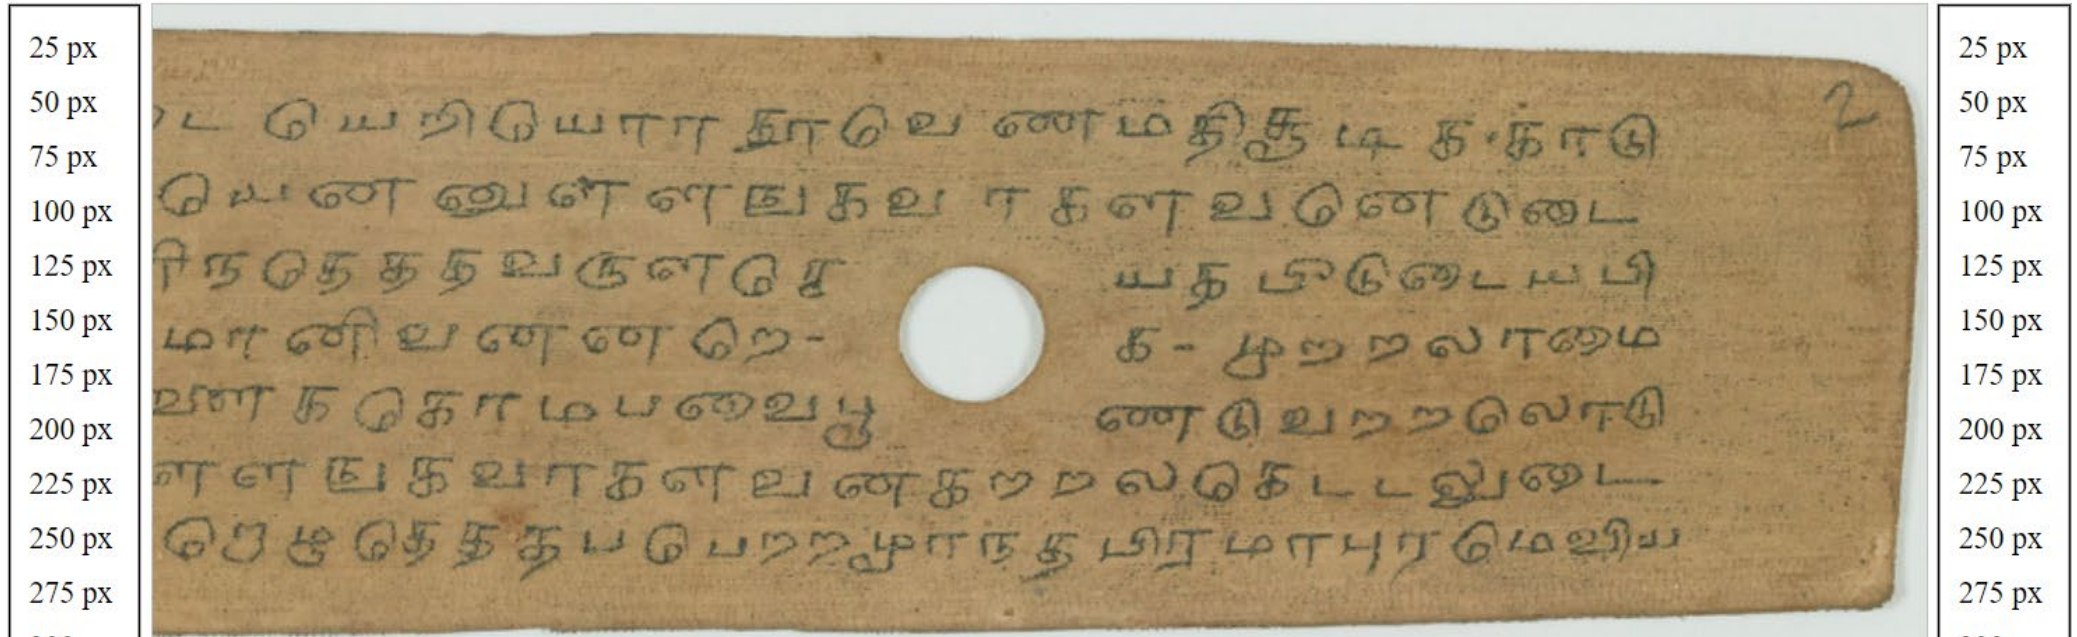 25 px
50 px
75 px
100 px
125 px
150 px
175 px
200 px
225 px
250 px
275 px
2
ட யெறியொரர தூவெணமதிசூடிக-காடு
யெனனுளளஙகவரகளவனெடுடை
ிநதெததவருளசெ யத பீடுடையபி
மானிவனனறெ- க- முறறலாமை
ளககொமபவைபூ ணடுவறறலொடு
ளளஙகவரகளவனகறறலகெடடலுடை
றொழுதெததபபெறறமூரநதபிரமாபுரமெவிய
25 px
50 px
75 px
100 px
125 px
150 px
175 px
200 px
225 px
250 px
275 px